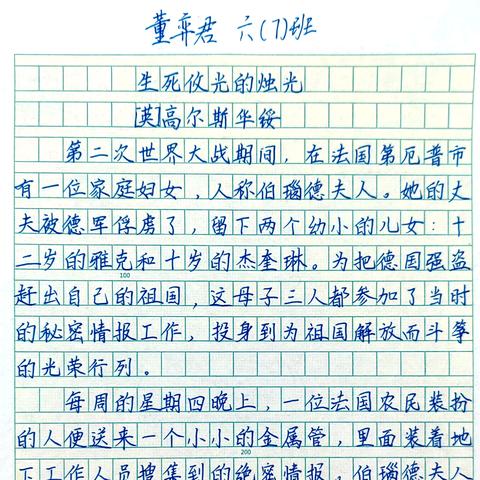 董弈君 六(7)班
生死攸光的烛光
[英]高尔斯华绥
第二次世界大战期间，在法国第厄普市
有一位家庭妇女，人称伯瑙德夫人。她的丈
夫被德军俘虏了，留下两个幼小的儿女：十
二岁的雅克和十岁的杰奎琳。为把德国强盗
100
赶出自己的祖国，这母子三人都参加了当时
的秘密情报工作，投身到为祖国解放而斗争
的光荣行列。
每周的星期四晚上，一位法国农民装扮
的人便送来一个小小的金属管，里面装着地
200
下工作人员搜集到的绝密情报。伯瑙德夫人